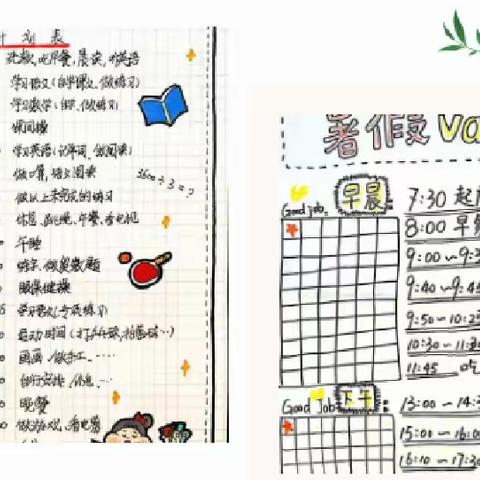 计划表
洗漱、吃早餐、晨读、听英语
学习语文(自学课文、做练习)
学习数学(自学、做练习)
课间操
学习英语(记单词、做阅读)
做口算、语文阅读
做以上未完成的练习
午睡
练字、做奥数题
眼保健操
运动时间(打乒乓球、拍篮球…)
画画、做手工、……
自行安排、休息、…
晚餐
做游戏、看电影
360÷3=?
暑假Va
Good job.
早晨
7:30 起
8:00 早餐
9:00~9:3
9:40~9:45
9:50~10:25
10:30~11:30
11:45 吃
Good Job
下午
13:00~14:3
15:00~16:0
16:10~17:30